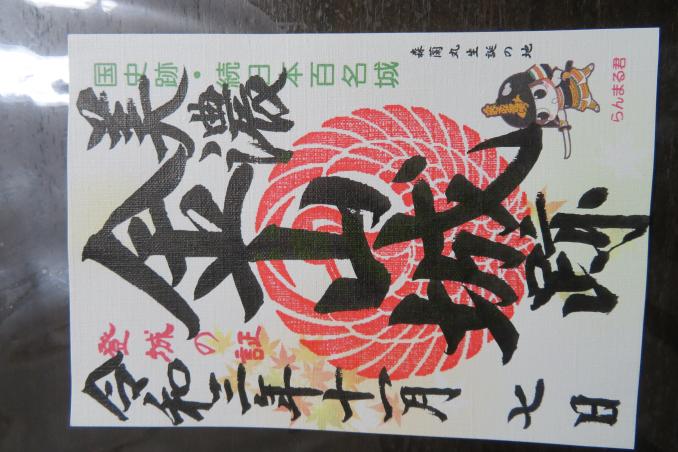 森蘭丸生誕の地
らんまる君
国史跡・続日本百名城
美濃
金山城跡
登城の証
令和三年十一月七日